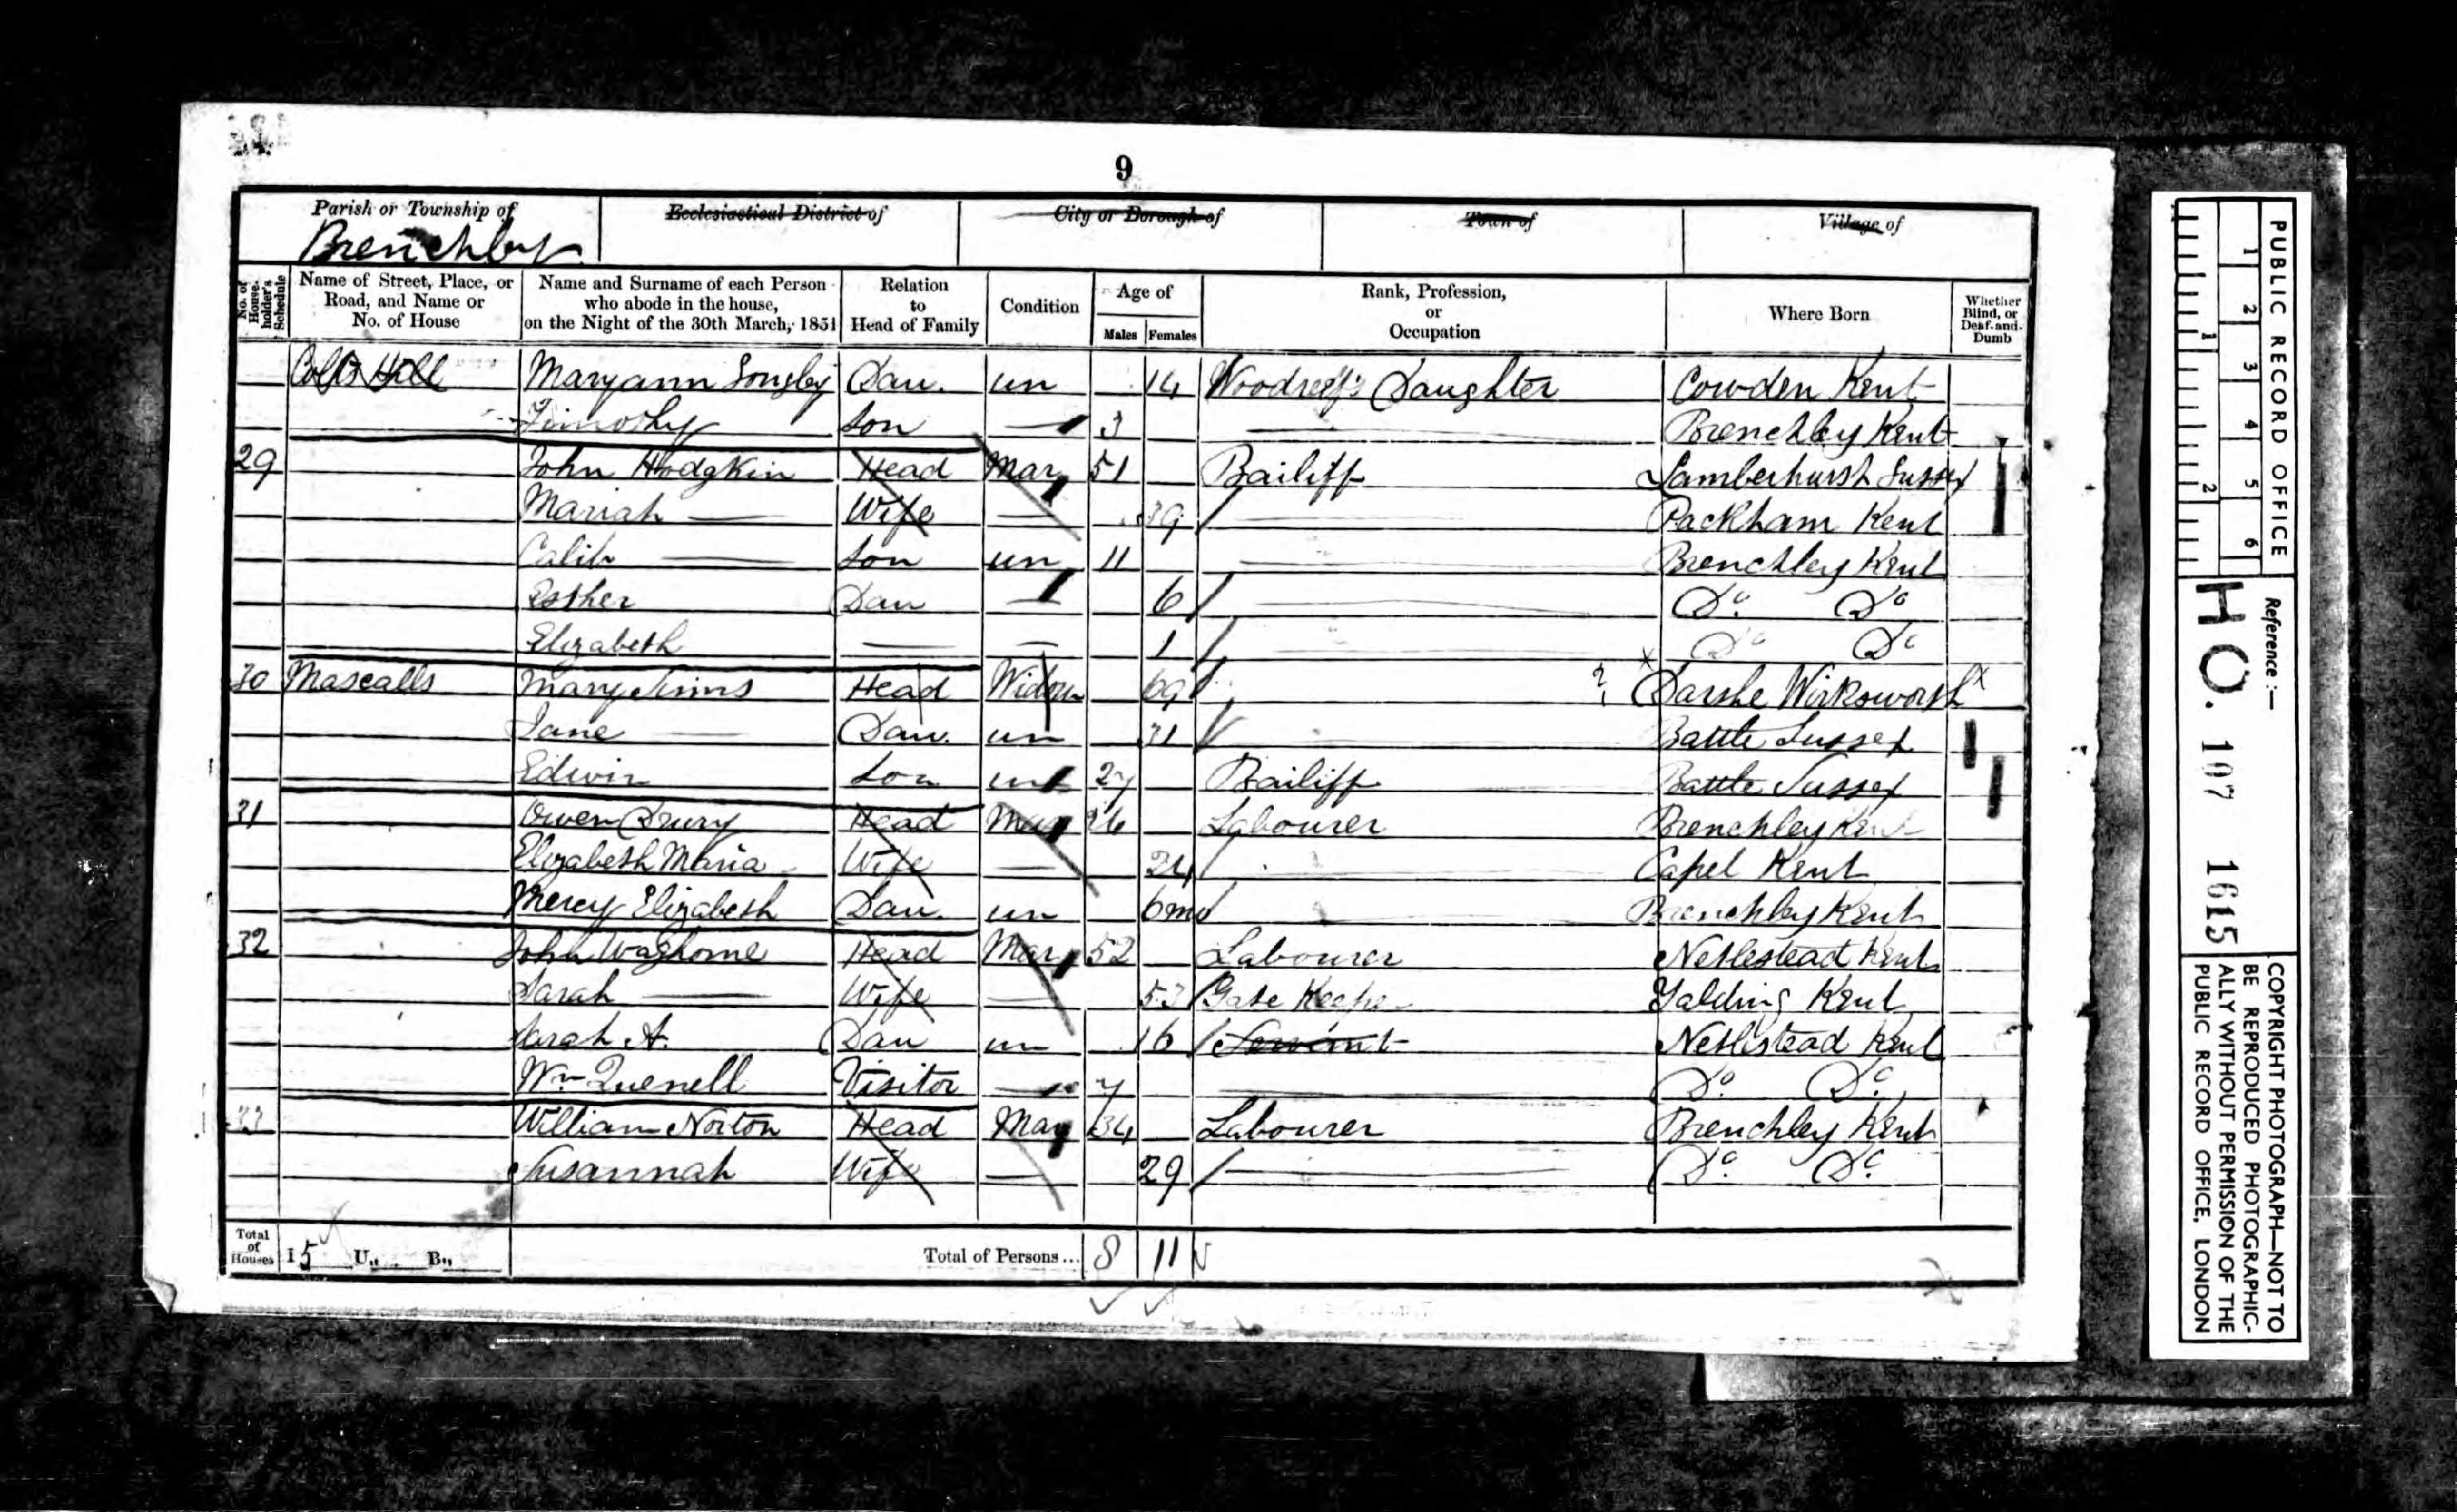 9
Parish or Township of Ecclesiastical District of City or Borough of Town of Village of
Brenchley
No. of House-holder's Schedule
Name of Street, Place, or Road, and Name or No. of House
Name and Surname of each Person who abode in the house, on the Night of the 30th March, 1851
Relation to Head of Family
Condition
Age of
Males Females
Rank, Profession, or Occupation
Where Born
Whether Blind, or Deaf-and-Dumb
Colts Hill Maryann Longley Dau. un 14 Woodreef's Daughter Cowden Kent
Timothy Son 3 Brenchley Kent
29 John Hodgkin Head Mar 51 Bailiff Lamberhurst Sussex
Mariah Wife 39 Packham Kent
Calib Son un 11 Brenchley Kent
Esther Dau 6 Do. Do
Elizabeth 1 Do Do
30 Mascalls Mary Head Widow 69 ? Darshe Wirksworth
Jane Dau. un 31 Battle Sussex
Edwin Son un 27 Bailiff Battle Sussex
31 Owen Drury Head Mar 26 Labourer Brenchley Kent
Elizabeth Maria Wife 24 Capel Kent
Mercy Elizabeth Dau. un 6m Brenchley Kent
32 John Waghorne Head Mar 52 Labourer Netlestead Kent
Sarah Wife 53 Gate Keeper Yalding Kent
Sarah A. Dau un 16 Servant Netlistead Kent
Wm Quenell Visitor 7 Do. Do.
33 William Norton Head Mar 34 Labourer Brenchley Kent
Susannah Wife 29 Do. Do.
Total of Houses I 5 U.. B.. Total of Persons... 8 11
PUBLIC RECORD OFFICE
1 2 3 4 5 6
1 2
Reference :—
HO. 107 1615
COPYRIGHT PHOTOGRAPH—NOT TO BE REPRODUCED PHOTOGRAPHIC-ALLY WITHOUT PERMISSION OF THE PUBLIC RECORD OFFICE, LONDON